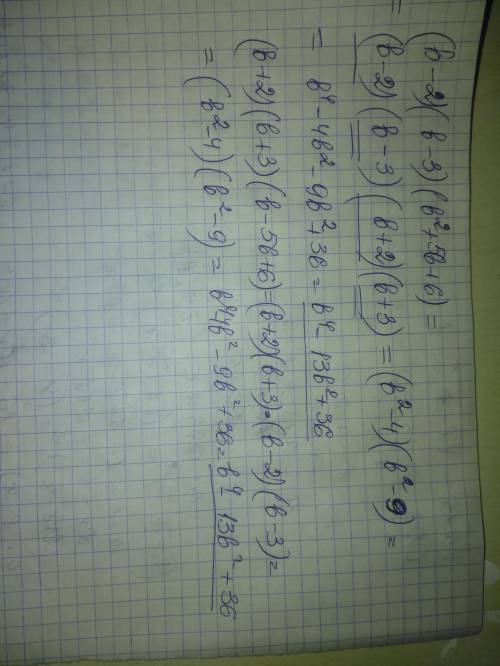 (b-2)(b-3)(b²+5b+6)=
= (b-2)(b-3)(b+2)(b+3) = (b²-4)(b²-9) =
= b⁴-4b²-9b²+36 = b⁴-13b²+36
(b+2)(b+3)(b-5b+6)=(b+2)(b+3)=(b-2)(b-3)=
= (b²-4)(b²-9) = b⁴4b²-9b²+36=b⁴-13b²+36